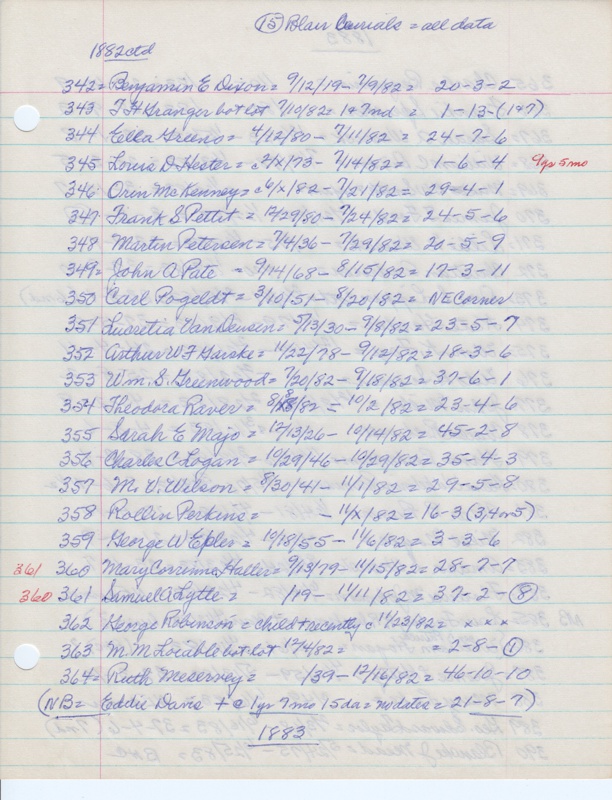 (15) Blair Burials = all data
1882 ctd
342 = Benjamin E Dixon = 9/12/19 - 7/9/82 = 20-3-2
343 T H Granger bot lot 7/10/82 = 1 & 7 nd = 1-13-(1&7)
344 Ella Greeno = 4/12/80 - 7/11/82 = 24-7-6
345 Louis D Hester = c 2/x/73 - 7/14/82 = 1-6-4 9yr 5mo
346 Oren McKenney = c 6/x/82 - 7/21/82 = 29-4-1
347 Frank S Pettit = 12/29/80 - 7/24/82 = 24-5-6
348 Martin Petersen = 7/4/36 - 7/29/82 = 20-5-9
349 = John A Pate = 9/14/68 - 8/15/82 = 17-3-11
350 Carl Pogeldt = 3/10/51 - 8/20/82 = NE Corner
351 Lucretia Van Deusen = 5/13/30 - 9/8/82 = 23-5-7
352 Arthur W F Garske = 11/22/78 - 9/12/82 = 18-3-6
353 Wm. S. Greenwood = 7/20/82 - 9/18/82 = 37-6-1
354 Theodora Raver = 8/8/82 = 10/2/82 = 23-4-6
355 Sarah E Majo = 12/13/26 - 10/14/82 = 45-2-8
356 Charles C Logan = 10/29/46 - 10/29/82 = 35-4-3
357 M. V. Wilson = 8/30/41 - 11/1/82 = 29-5-8
358 Rollin Perkins = - 11/x/82 = 16-3 (3,4 or 5)
359 George W Epler = 10/18/55 - 11/6/82 = 3-3-6
361 360 Mary Corrinne Haller = 9/13/79 - 11/15/82 = 28-7-7
360 361 Samuel A Lytte = /19 - 11/11/82 = 37-2-(8)
362 George Robinson = child + recently c 11/23/82 = x x x
363 M. M Loiable bot lot 12/4/82 = = 2-8-(1)
364 = Ruth Meserney = /39 - 12/16/82 = 46-10-10
(NB = Eddie Davis + @ 1yr 7mo 15da = no dates = 21-8-7)
1883